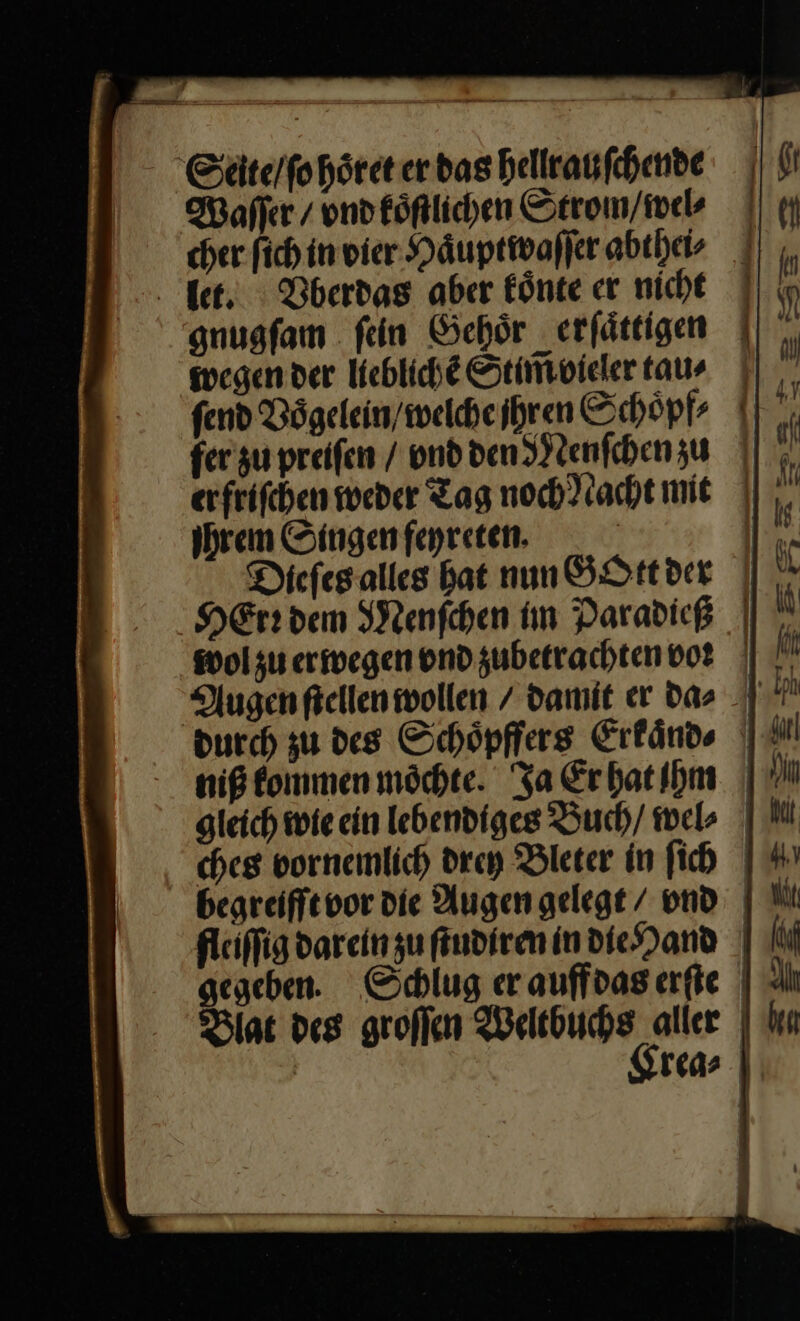 Seite/ſo hoͤret er das hellrauſchende
Waſſer / vnd koͤſtlichen Strom/wel⸗
cher ſich in vier Haͤuptwaſſer abthei⸗
let. Vberdas aber koͤnte er nicht
gnugſam ſein Gehoͤr erſaͤttigen
wegen der lieblichẽ Stim̃ vieler tau⸗
ſend Voͤgelein/welche jhren Schoͤpf⸗
fer zu preiſen / vnd den Menſchen zu
erfriſchen weder Tag noch Nacht mit
jhrem Singen feyreten.
Dieſes alles hat nun GOtt der
HErꝛ dem Menſchen im Paradieß
wol zu erwegen vnd zubetrachten voꝛ
Augen ſtellen wollen / damit er da⸗
durch zu des Schoͤpffers Erkaͤnd⸗
niß kommen moͤchte. Ja Er hat jhm
gleich wie ein lebendiges Buch/ wel⸗
ches vornemlich drey Bleter in ſich
begreifft vor die Augen gelegt / vnd
fleiſſig darein zu ſtudiren in die Hand
gegeben. Schlug er auff das erſte
Blat des groſſen Weltbuchs aller
Crea⸗